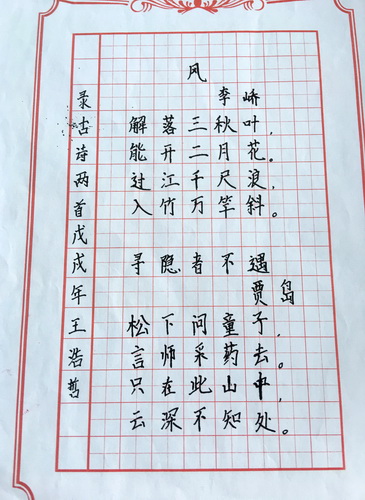 风
李峤
解落三秋叶，
能开二月花。
过江千尺浪，
入竹万竿斜。
寻隐者不遇
贾岛
松下问童子，
言师采药去。
只在此山中，
云深不知处。
录古诗两首戊戌年王浩哲